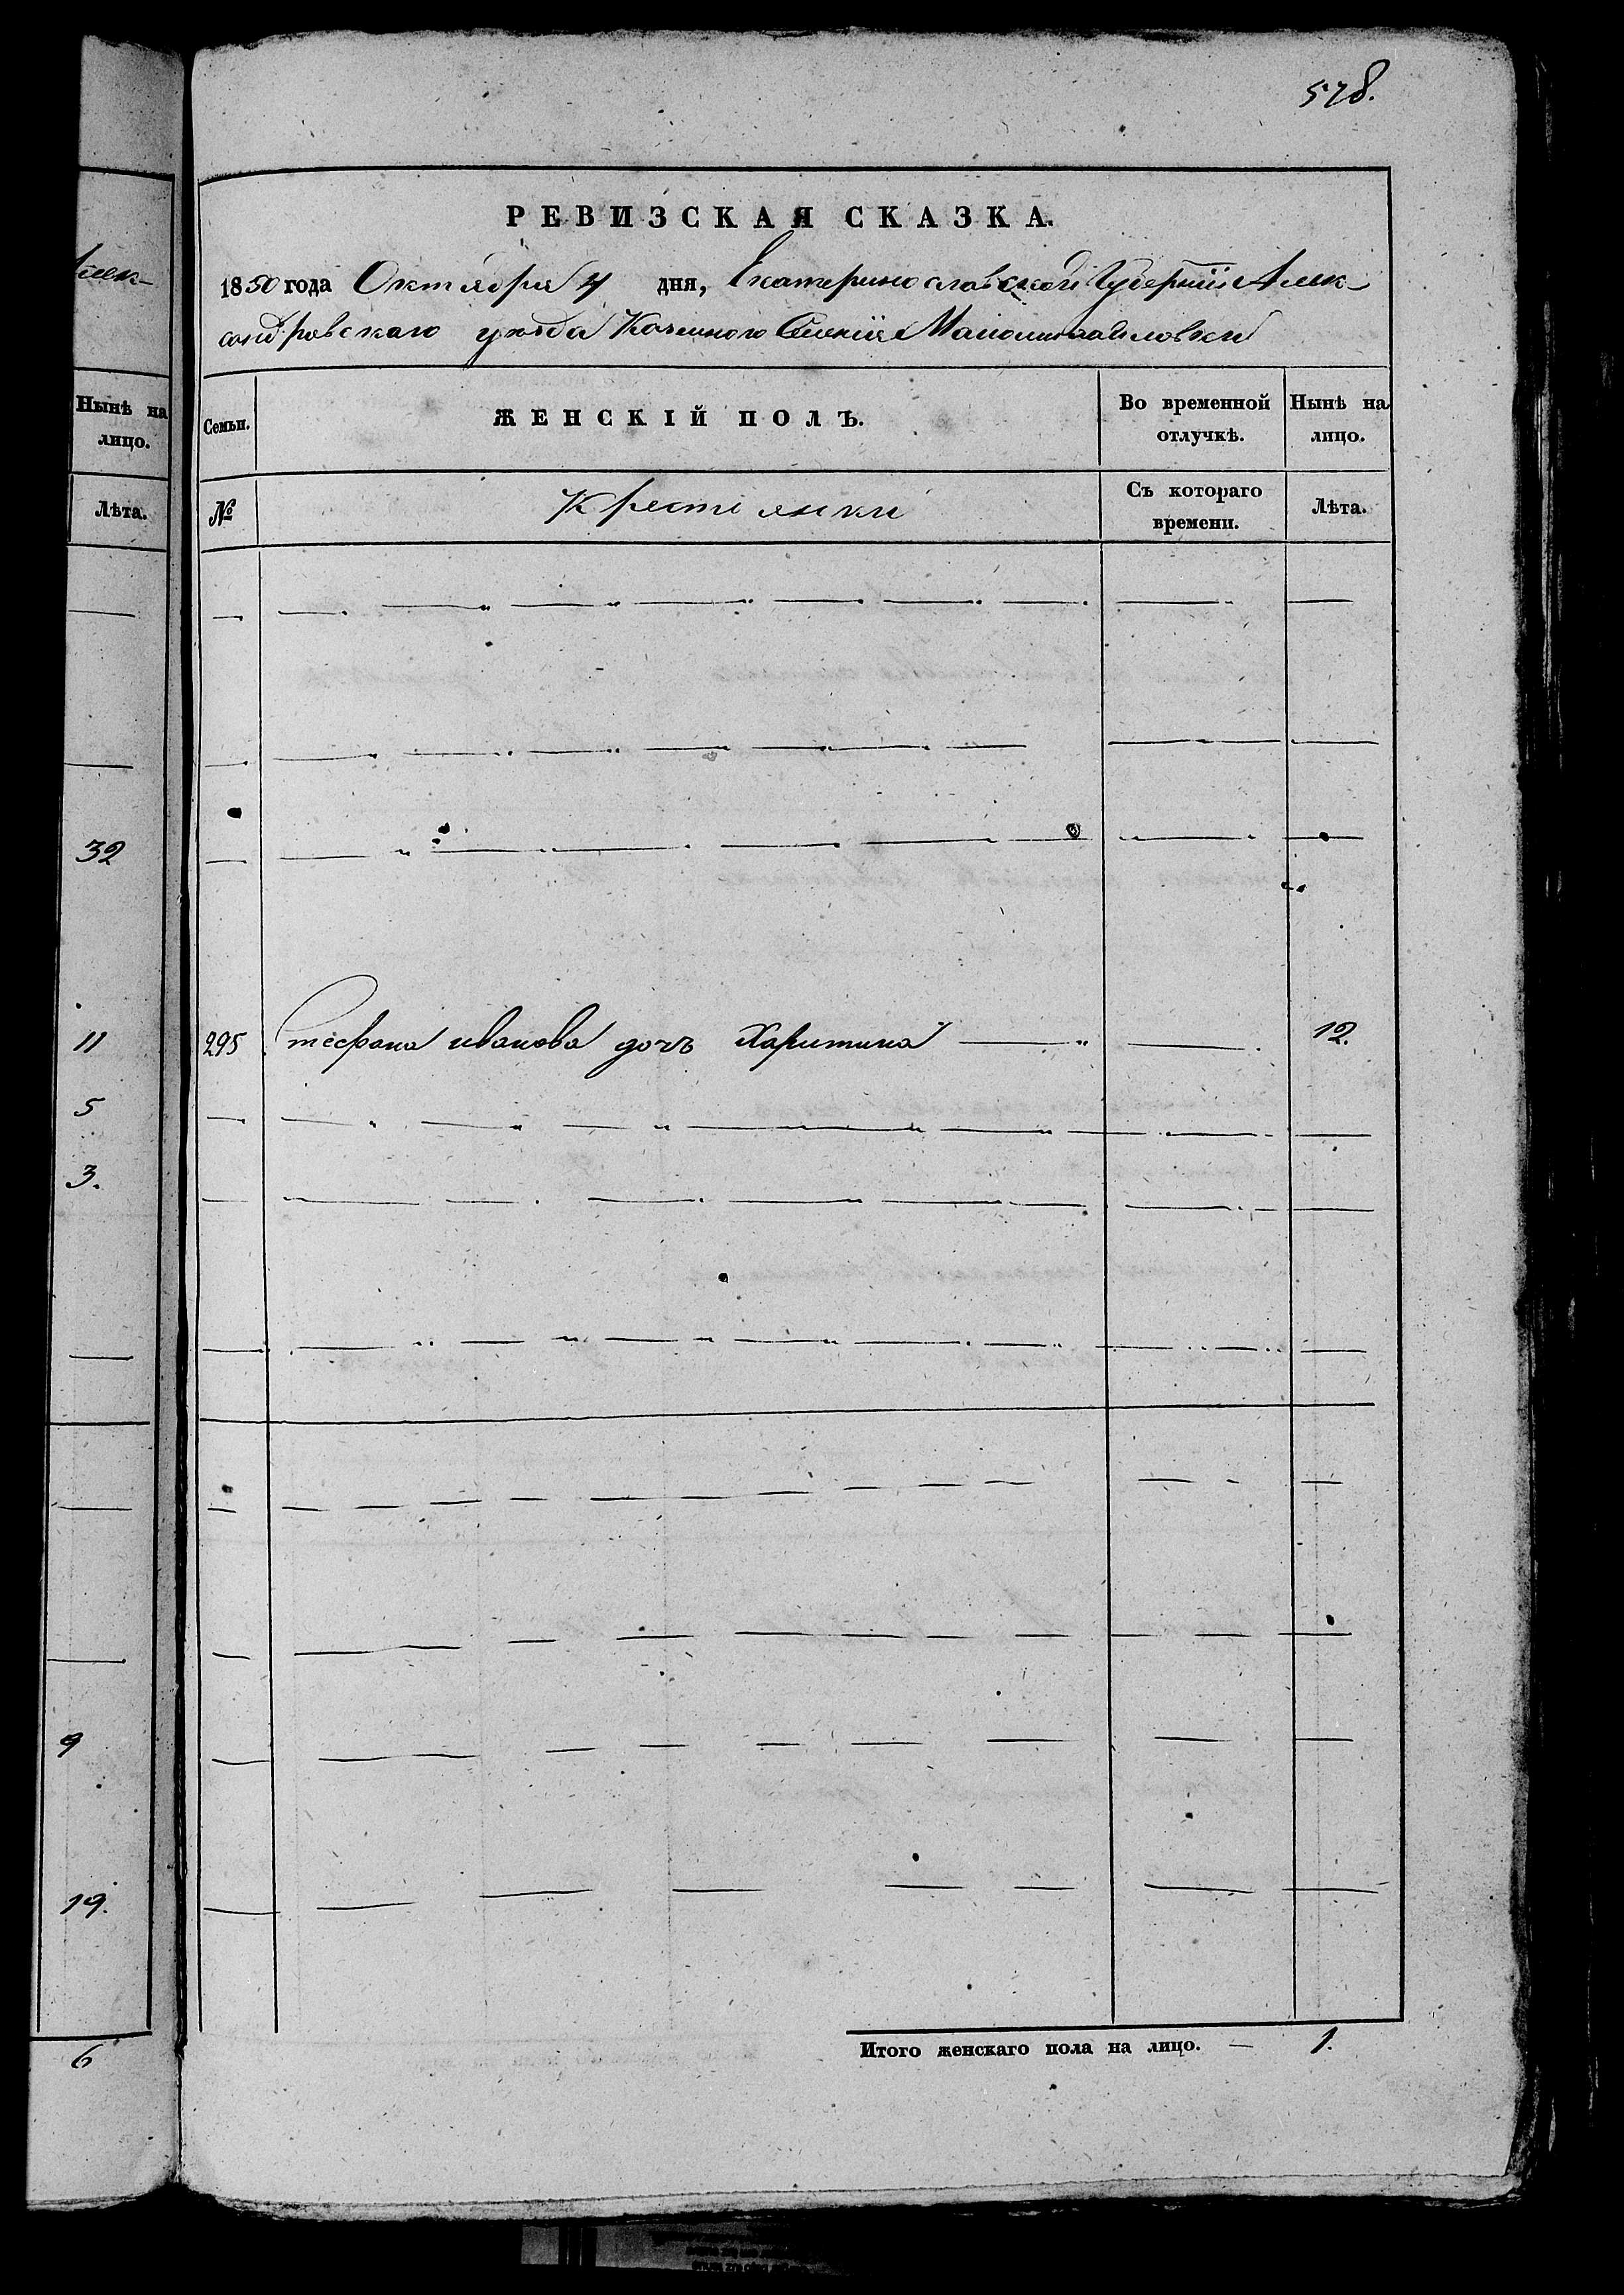 578.
РЕВИЗСКАЯ СКАЗКА.
1850 года Октября 4 дня, Екатеринославской Губернии Алек-
сандровскаго уезда Казенного Селения Маломихайловки
Семьи.
ЖЕНСКІЙ ПОЛЪ.
Во временной отлучкѣ.
Нынѣ на лицо.
№
Крестіянки
Съ котораго времени.
Лѣта.
295 Стефана иванова дочъ Харитина 12.
Итого женскаго пола на лицо. — 1.
Алек-
Нынѣ на
лицо.
Лѣта.
32
11
5
3.
9
19.
6